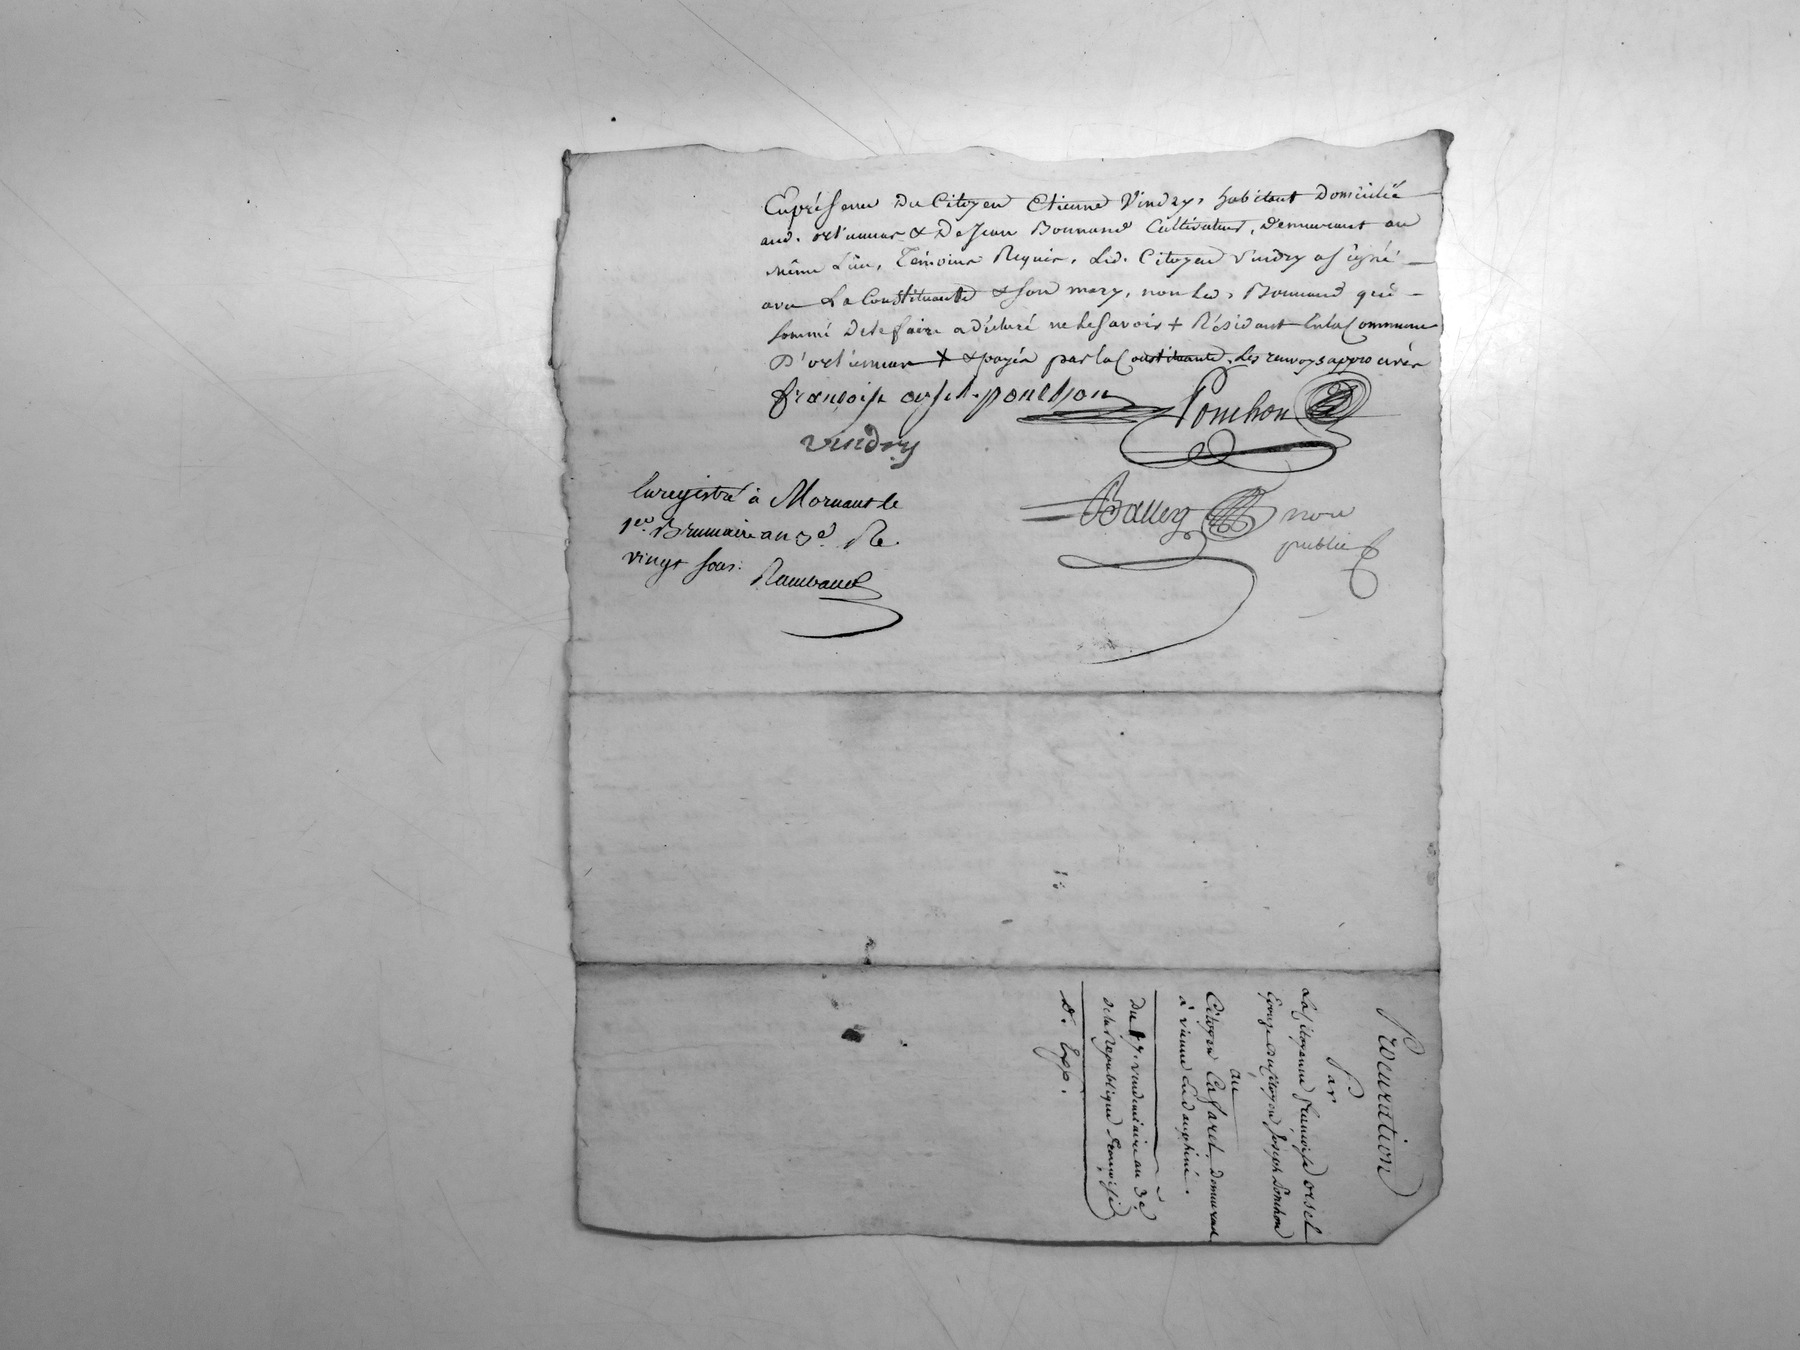 En présence du Citoyen Etienne Vindry, habitant Domicilié
aud. orliennas & De Jean Bonnand Cultivateur, demeurant au
même Lieu, Témoins Requis, Led. Citoyen Vindry a signé
avec La Constituante & son mary, non led. Bonnand qui
sommé De le faire a déclaré ne le savoir + Résidant En la Commune
D'orliennas + & payés par la Constituante. Les renvoys approuvés
françoise orsel ponchon Ponchon
vindry
Enregistré à Mornant le
1er. Brumaire an 3e. Re.
vingt sous.
Balley nore
public
Procuration
Par
La Citoyenne françoise orsel
Epouze du Citoyen Joseph Ponchon
au
Citoyen Casaret, demeurant
à vienne En dauphiné.
Du 17. vendemiaire an 3e.
de la Republique françoise
D. Exp.